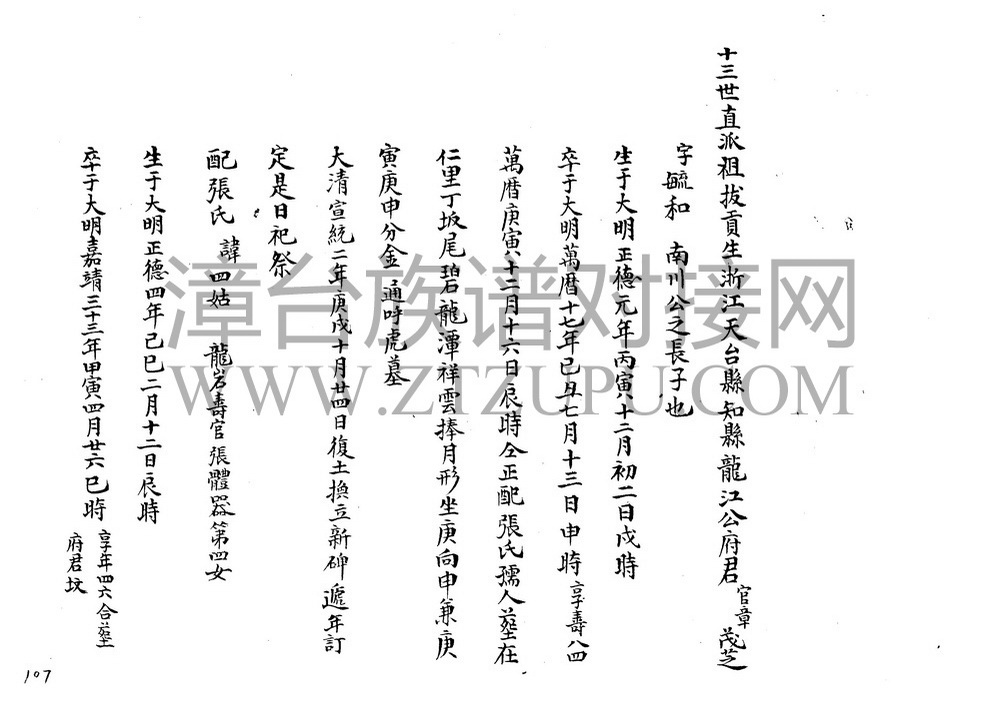 十三世直派祖拔貢生浙江天台縣知縣龍江公府君 官章 茂芝
字毓和 南川公之長子也
生于大明正德元年丙寅十二月初二日戌時
卒于大明萬曆十七年己丑七月十三日申時 享壽八四
萬曆庚寅十二月十六日辰時仝正配張氏孺人塟在
仁里丁坂尾碧龍潭祥雲捧月形坐庚向申兼庚
寅庚申分金 通呼虎墓
大清宣統二年庚戌十月廿四日復土換立新碑遞年訂
定是日祀祭
配張氏 諱四姑 龍岩壽官張體器第四女
生于大明正德四年己巳二月十二日辰時
卒于大明嘉靖三十三年甲寅四月廿六巳時 享年四六合塟
府君坟
漳台族谱对接网
WWW.ZTZUPU.COM
107